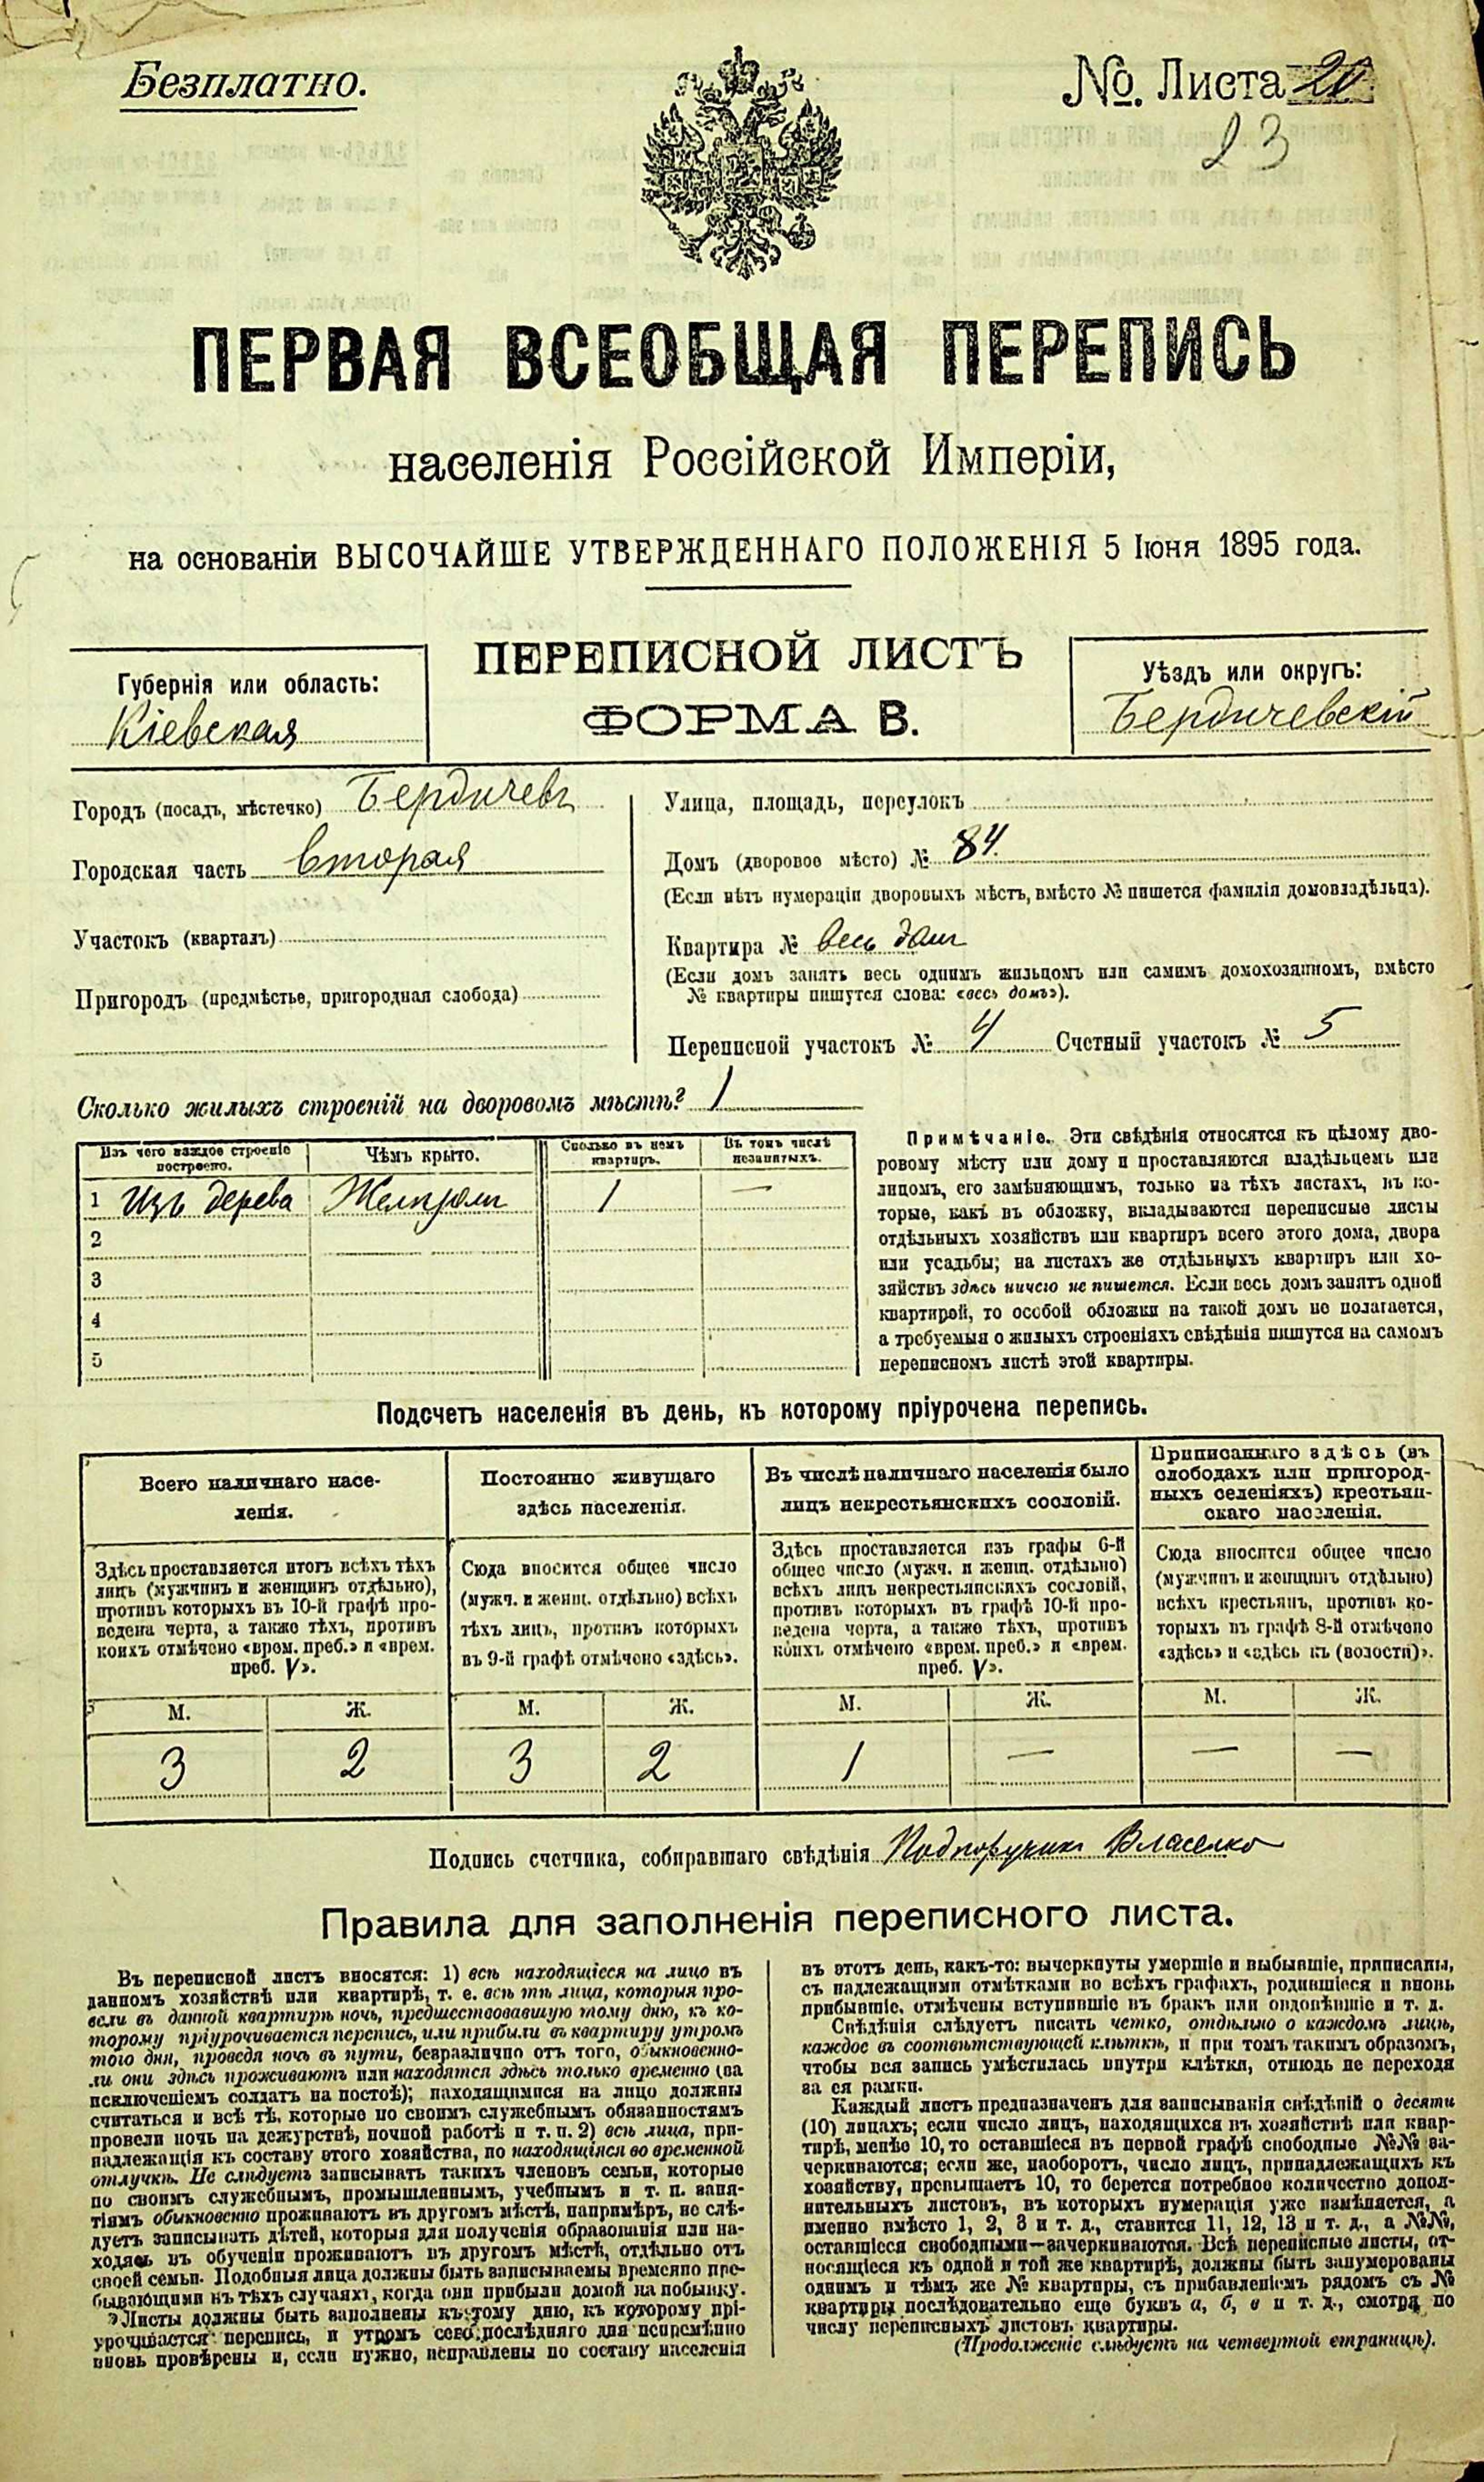 Безплатно.
№. Листа 20
23
ПЕРВАЯ ВСЕОБЩАЯ ПЕРЕПИСЬ
населенія Россійской Имперіи,
на основаніи ВЫСОЧАЙШЕ УТВЕРЖДЕННАГО ПОЛОЖЕНІЯ 5 Іюня 1895 года.
ПЕРЕПИСНОЙ ЛИСТЪ
ФОРМА В.
Губернія или область:
Кіевская
Уѣздъ или округъ:
Бердичевскій
Городъ (посадъ, мѣстечко) Бердичевъ
Городская часть вторая
Участокъ (кварталъ)
Пригородъ (предмѣстье, пригородная слобода)
Улица, площадь, переулокъ
Домъ (дворовое мѣсто) № 84.
(Если нѣтъ нумераціи дворовыхъ мѣстъ, вмѣсто № пишется фамилія домовладѣльца).
Квартира № весь домъ
(Если домъ занятъ весь однимъ жильцомъ или самимъ домохозяиномъ, вмѣсто
№ квартиры пишутся слова: «весь домъ»).
Переписной участокъ № 4 Счетный участокъ № 5
Сколько жилыхъ строеній на дворовомъ мѣстѣ? 1
Изъ чего каждое строеніе построено.
Чѣмъ крыто.
Сколько въ немъ квартиръ.
Въ томъ числѣ незанятыхъ.
1 Изъ дерева Желѣзомъ 1 —
2
3
4
5
Примѣчаніе. Эти свѣдѣнія относятся къ цѣлому дво-
ровому мѣсту или дому и проставляются владѣльцемъ или
лицомъ, его замѣняющимъ, только на тѣхъ листахъ, въ ко-
торые, какъ въ обложку, вкладываются переписные листы
отдѣльныхъ хозяйствъ или квартиръ всего этого дома, двора
или усадьбы; на листахъ же отдѣльныхъ квартиръ или хо-
зяйствъ здѣсь ничего не пишется. Если весь домъ занятъ одной
квартирой, то особой обложки на такой домъ не полагается,
а требуемыя о жилыхъ строеніяхъ свѣдѣнія пишутся на самомъ
переписномъ листѣ этой квартиры.
Подсчетъ населенія въ день, къ которому пріурочена перепись.
Всего наличнаго насе-
ленія.
Здѣсь проставляется итогъ всѣхъ тѣхъ
лицъ (мужчинъ и женщинъ отдѣльно),
противъ которыхъ въ 10-й графѣ про-
ведена черта, а также тѣхъ, противъ
коихъ отмѣчено «врем. преб.» и «врем.
преб. V».
Постоянно живущаго
здѣсь населенія.
Сюда вносится общее число
(мужч. и женщ. отдѣльно) всѣхъ
тѣхъ лицъ, противъ которыхъ
въ 9-й графѣ отмѣчено «здѣсь».
Въ числѣ наличнаго населенія было
лицъ некрестьянскихъ сословій.
Здѣсь проставляется изъ графы 6-й
общее число (мужч. и женщ. отдѣльно)
всѣхъ лицъ некрестьянскихъ сословій,
противъ которыхъ въ графѣ 10-й про-
ведена черта, а также тѣхъ, противъ
коихъ отмѣчено «врем. преб.» и «врем.
преб. V».
Приписаннаго здѣсь (въ
слободахъ или пригород-
ныхъ селеніяхъ) крестьян-
скаго населенія.
Сюда вносится общее число
(мужчинъ и женщинъ отдѣльно)
всѣхъ крестьянъ, противъ ко-
торыхъ въ графѣ 8-й отмѣчено
«здѣсь» и «здѣсь къ (волости)».
М. Ж. М. Ж. М. Ж. М. Ж.
3 2 3 2 1 — — —
Подпись счетчика, собиравшаго свѣдѣнія Подпоручикъ Власенко
Правила для заполненія переписного листа.
Въ переписной листъ вносятся: 1) всѣ находящіеся на лицо въ
данномъ хозяйствѣ или квартирѣ, т. е. всѣ тѣ лица, которыя про-
вели въ данной квартирѣ ночь, предшествовавшую тому дню, къ ко-
торому пріурочивается перепись, или прибыли въ квартиру утромъ
того дня, проведя ночь въ пути, безразлично отъ того, обыкновенно-
ли они здѣсь проживаютъ или находятся здѣсь только временно (за
исключеніемъ солдатъ на постоѣ); находящимися на лицо должны
считаться и всѣ тѣ, которые по своимъ служебнымъ обязанностямъ
провели ночь на дежурствѣ, ночной работѣ и т. п. 2) всѣ лица, при-
надлежащія къ составу этого хозяйства, но находящіяся во временной
отлучкѣ. Не слѣдуетъ записывать такихъ членовъ семьи, которые
по своимъ служебнымъ, промышленнымъ, учебнымъ и т. п. заня-
тіямъ обыкновенно проживаютъ въ другомъ мѣстѣ, напримѣръ, не слѣ-
дуетъ записывать дѣтей, которыя для полученія образованія или на-
ходясь въ обученіи проживаютъ въ другомъ мѣстѣ, отдѣльно отъ
своей семьи. Подобныя лица должны быть записываемы временно пре-
бывающими въ тѣхъ случаяхъ, когда они прибыли домой на побывку.
Листы должны быть заполнены къ тому дню, къ которому прі-
урочивается перепись, и утромъ сего послѣдняго дня непремѣнно
вновь провѣрены и, если нужно, исправлены по составу населенія
въ этотъ день, какъ-то: вычеркнуты умершіе и выбывшіе, приписаны,
съ надлежащими отмѣтками во всѣхъ графахъ, родившіеся и вновь
прибывшіе, отмѣчены вступившіе въ бракъ или овдовѣвшіе и т. д.
Свѣдѣнія слѣдуетъ писать четко, отдѣльно о каждомъ лицѣ,
каждое въ соотвѣтствующей клѣткѣ, и при томъ такимъ образомъ,
чтобы вся запись умѣстилась внутри клѣтки, отнюдь не переходя
за ея рамки.
Каждый листъ предназначенъ для записыванія свѣдѣній о десяти
(10) лицахъ; если число лицъ, находящихся въ хозяйствѣ или квар-
тирѣ, менѣе 10, то оставшіеся въ первой графѣ свободные №№ за-
черкиваются; если же, наоборотъ, число лицъ, принадлежащихъ къ
хозяйству, превышаетъ 10, то берется потребное количество допол-
нительныхъ листовъ, въ которыхъ нумерація уже измѣняется, а
именно вмѣсто 1, 2, 3 и т. д., ставится 11, 12, 13 и т. д., а №№,
оставшіеся свободными—зачеркиваются. Всѣ переписные листы, от-
носящіеся къ одной и той же квартирѣ, должны быть занумерованы
однимъ и тѣмъ же № квартиры, съ прибавленіемъ рядомъ съ №
квартиры послѣдовательно еще буквъ а, б, в и т. д., смотря по
числу переписныхъ листовъ квартиры.
(Продолженіе слѣдуетъ на четвертой страницѣ).